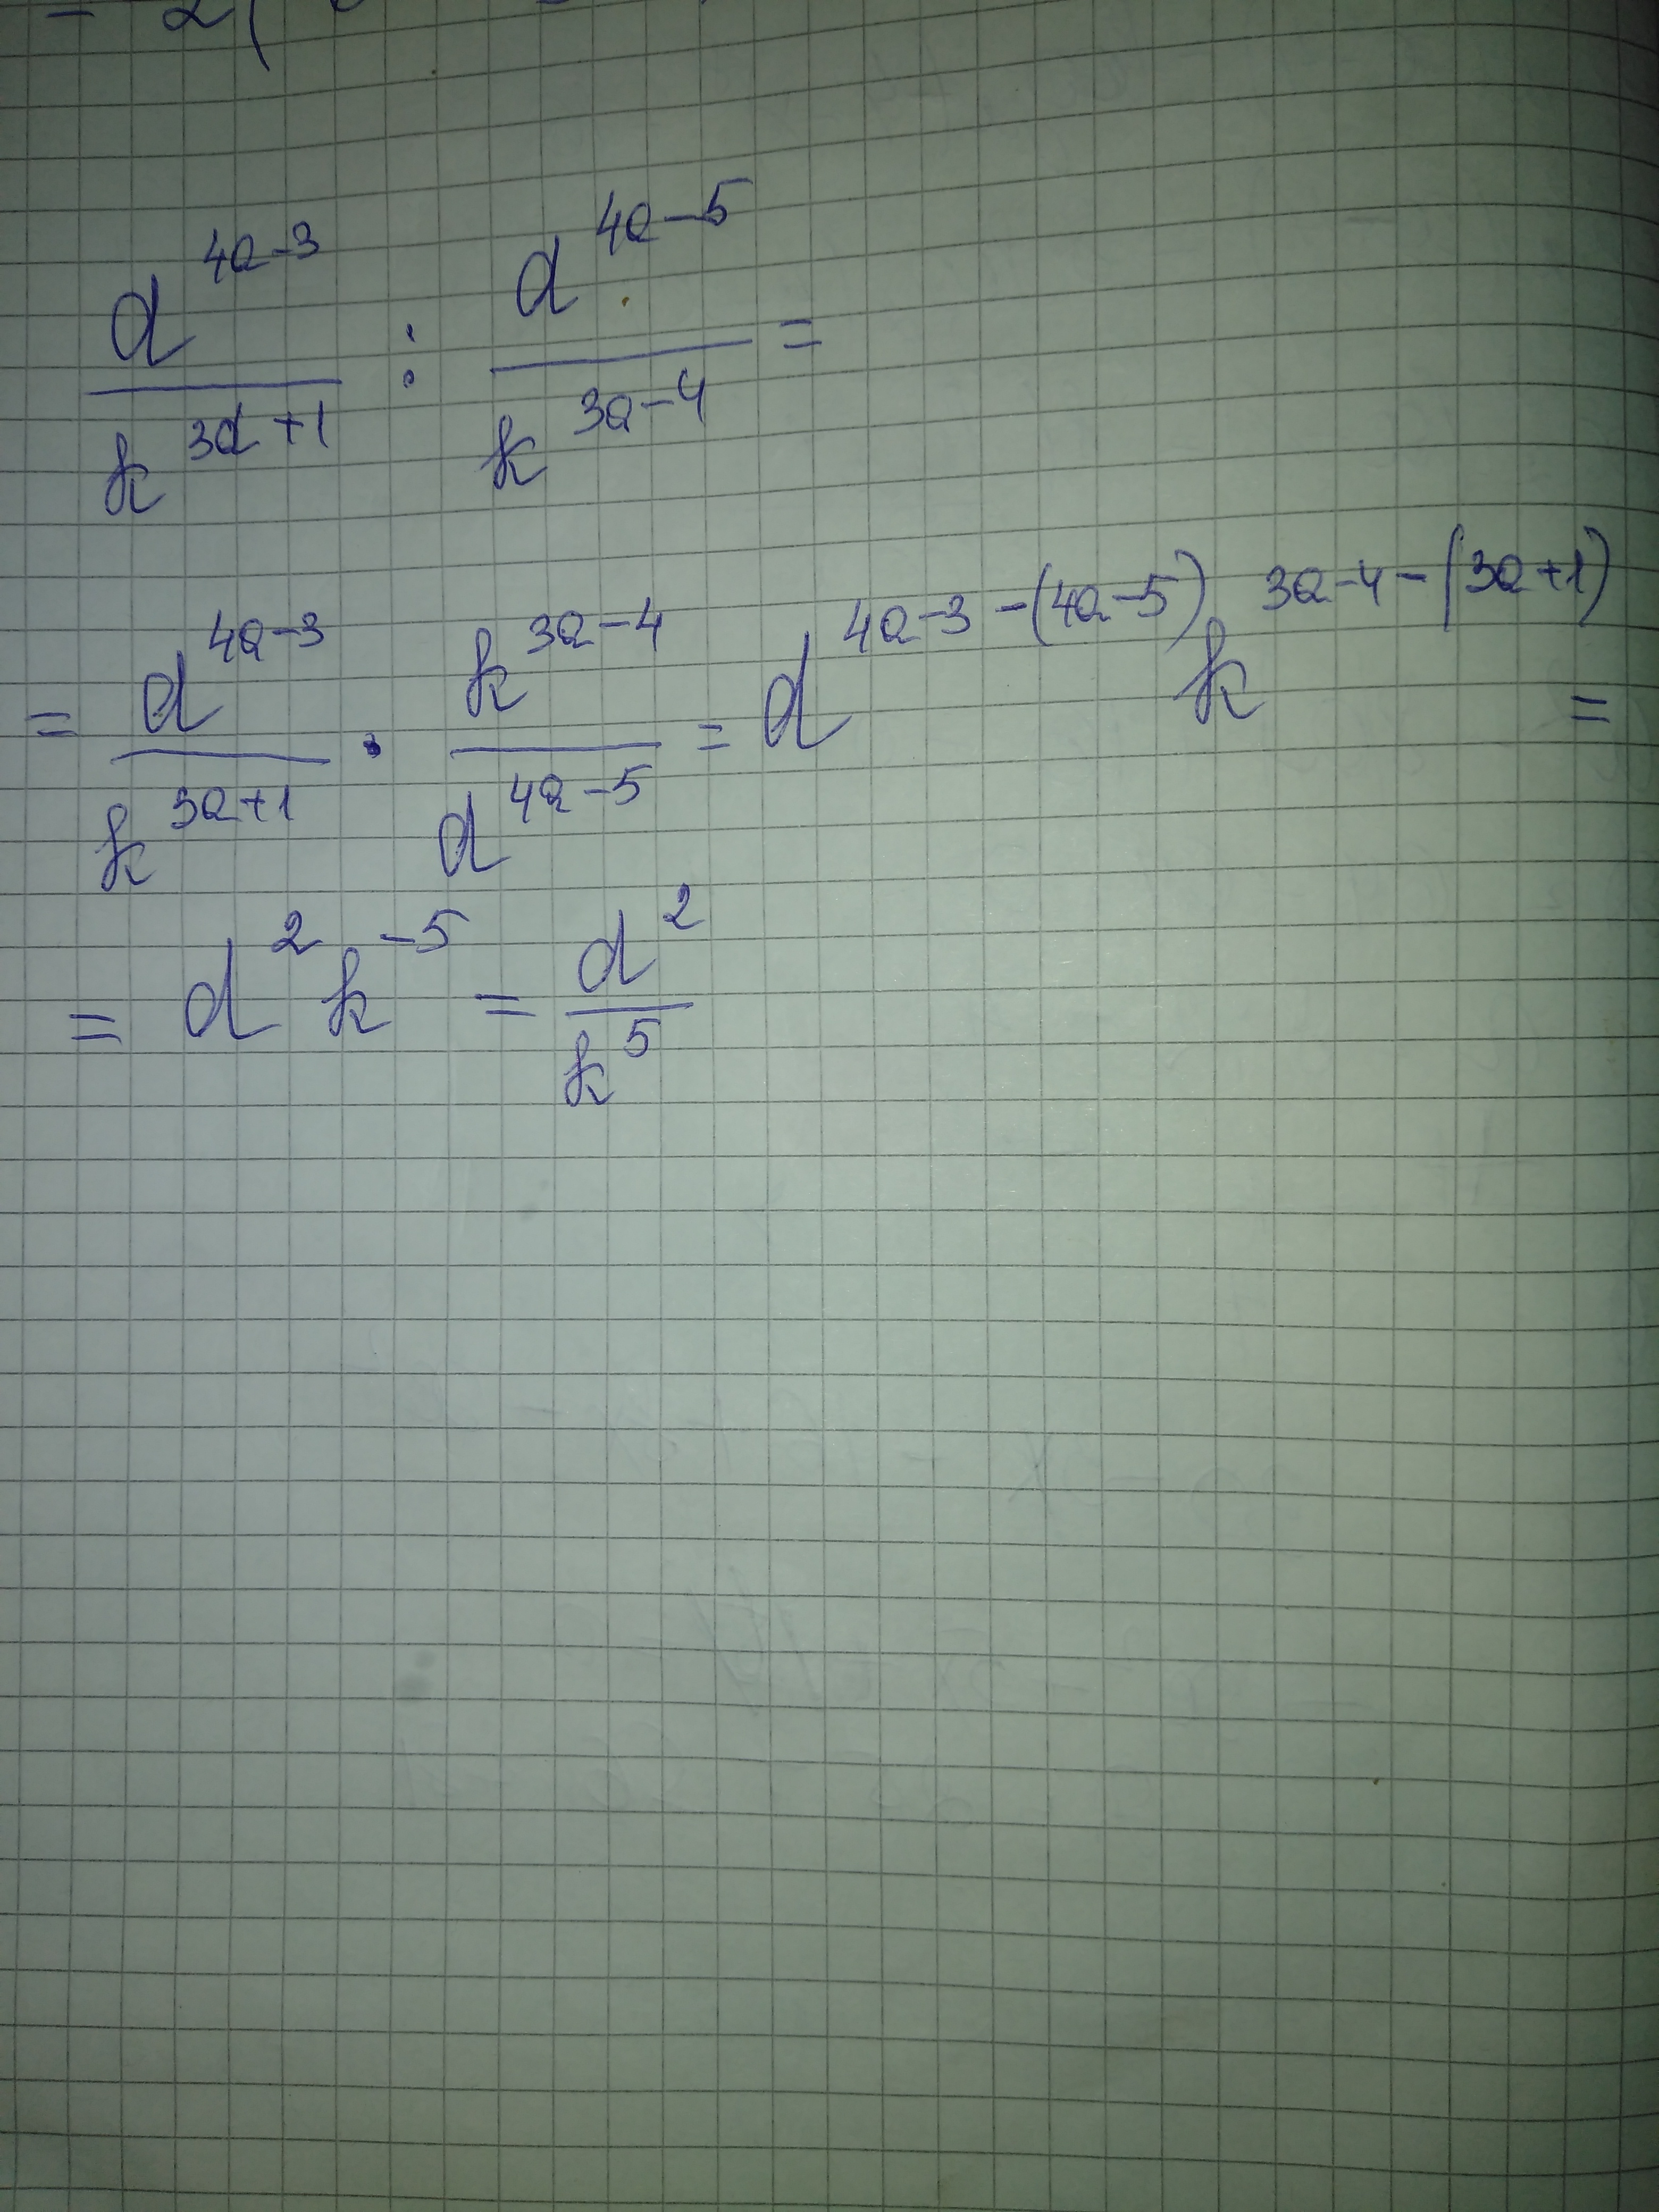 = 2(
d^{4a-3} / k^{3d+1} : d^{4a-5} / k^{3a-4} =
= d^{4a-3} / k^{3a+1} · k^{3a-4} / d^{4a-5} = d^{4a-3-(4a-5)} k^{3a-4-(3a+1)} =
= d^2 k^{-5} = d^2 / k^5